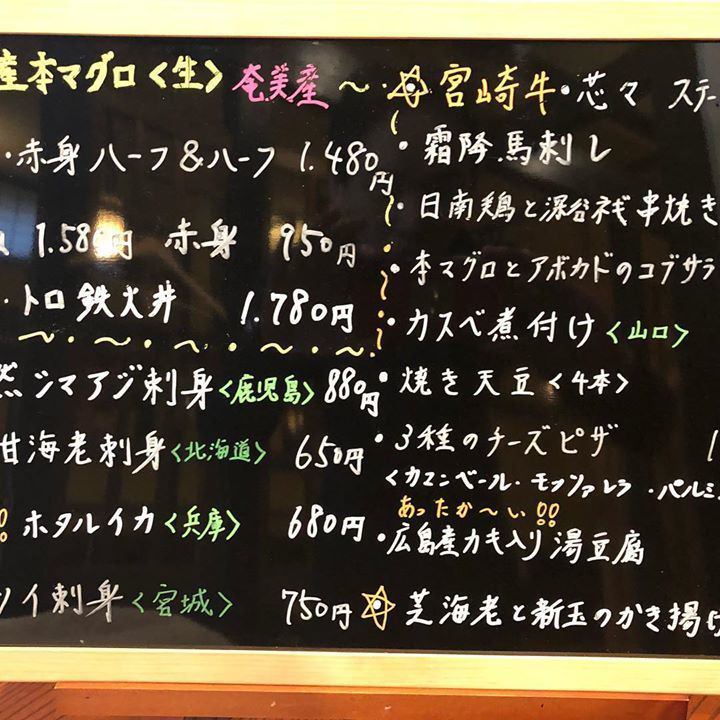 産本マグロ〈生〉 奄美産
・赤身ハーフ&ハーフ 1.480円
1.580円 赤身 950円
・トロ鉄火丼 1.780円
然シマアジ刺身〈鹿児島〉 880円
甘海老刺身〈北海道〉 650円
!! ホタルイカ〈兵庫〉 680円
ソイ刺身〈宮城〉 750円
宮崎牛・芯々 ステー
・霜降馬刺し
・日南鶏と深谷ネギ串焼き
・本マグロとアボカドのコブサラ
・カスベ煮付け〈山口〉
・焼き天豆〈4本〉
・3種のチーズピザ 1
〈カマンベール・モッツァレラ・パルミ
あったか〜い!!
・広島産カキ入り湯豆腐
芝海老と新玉のかき揚げ